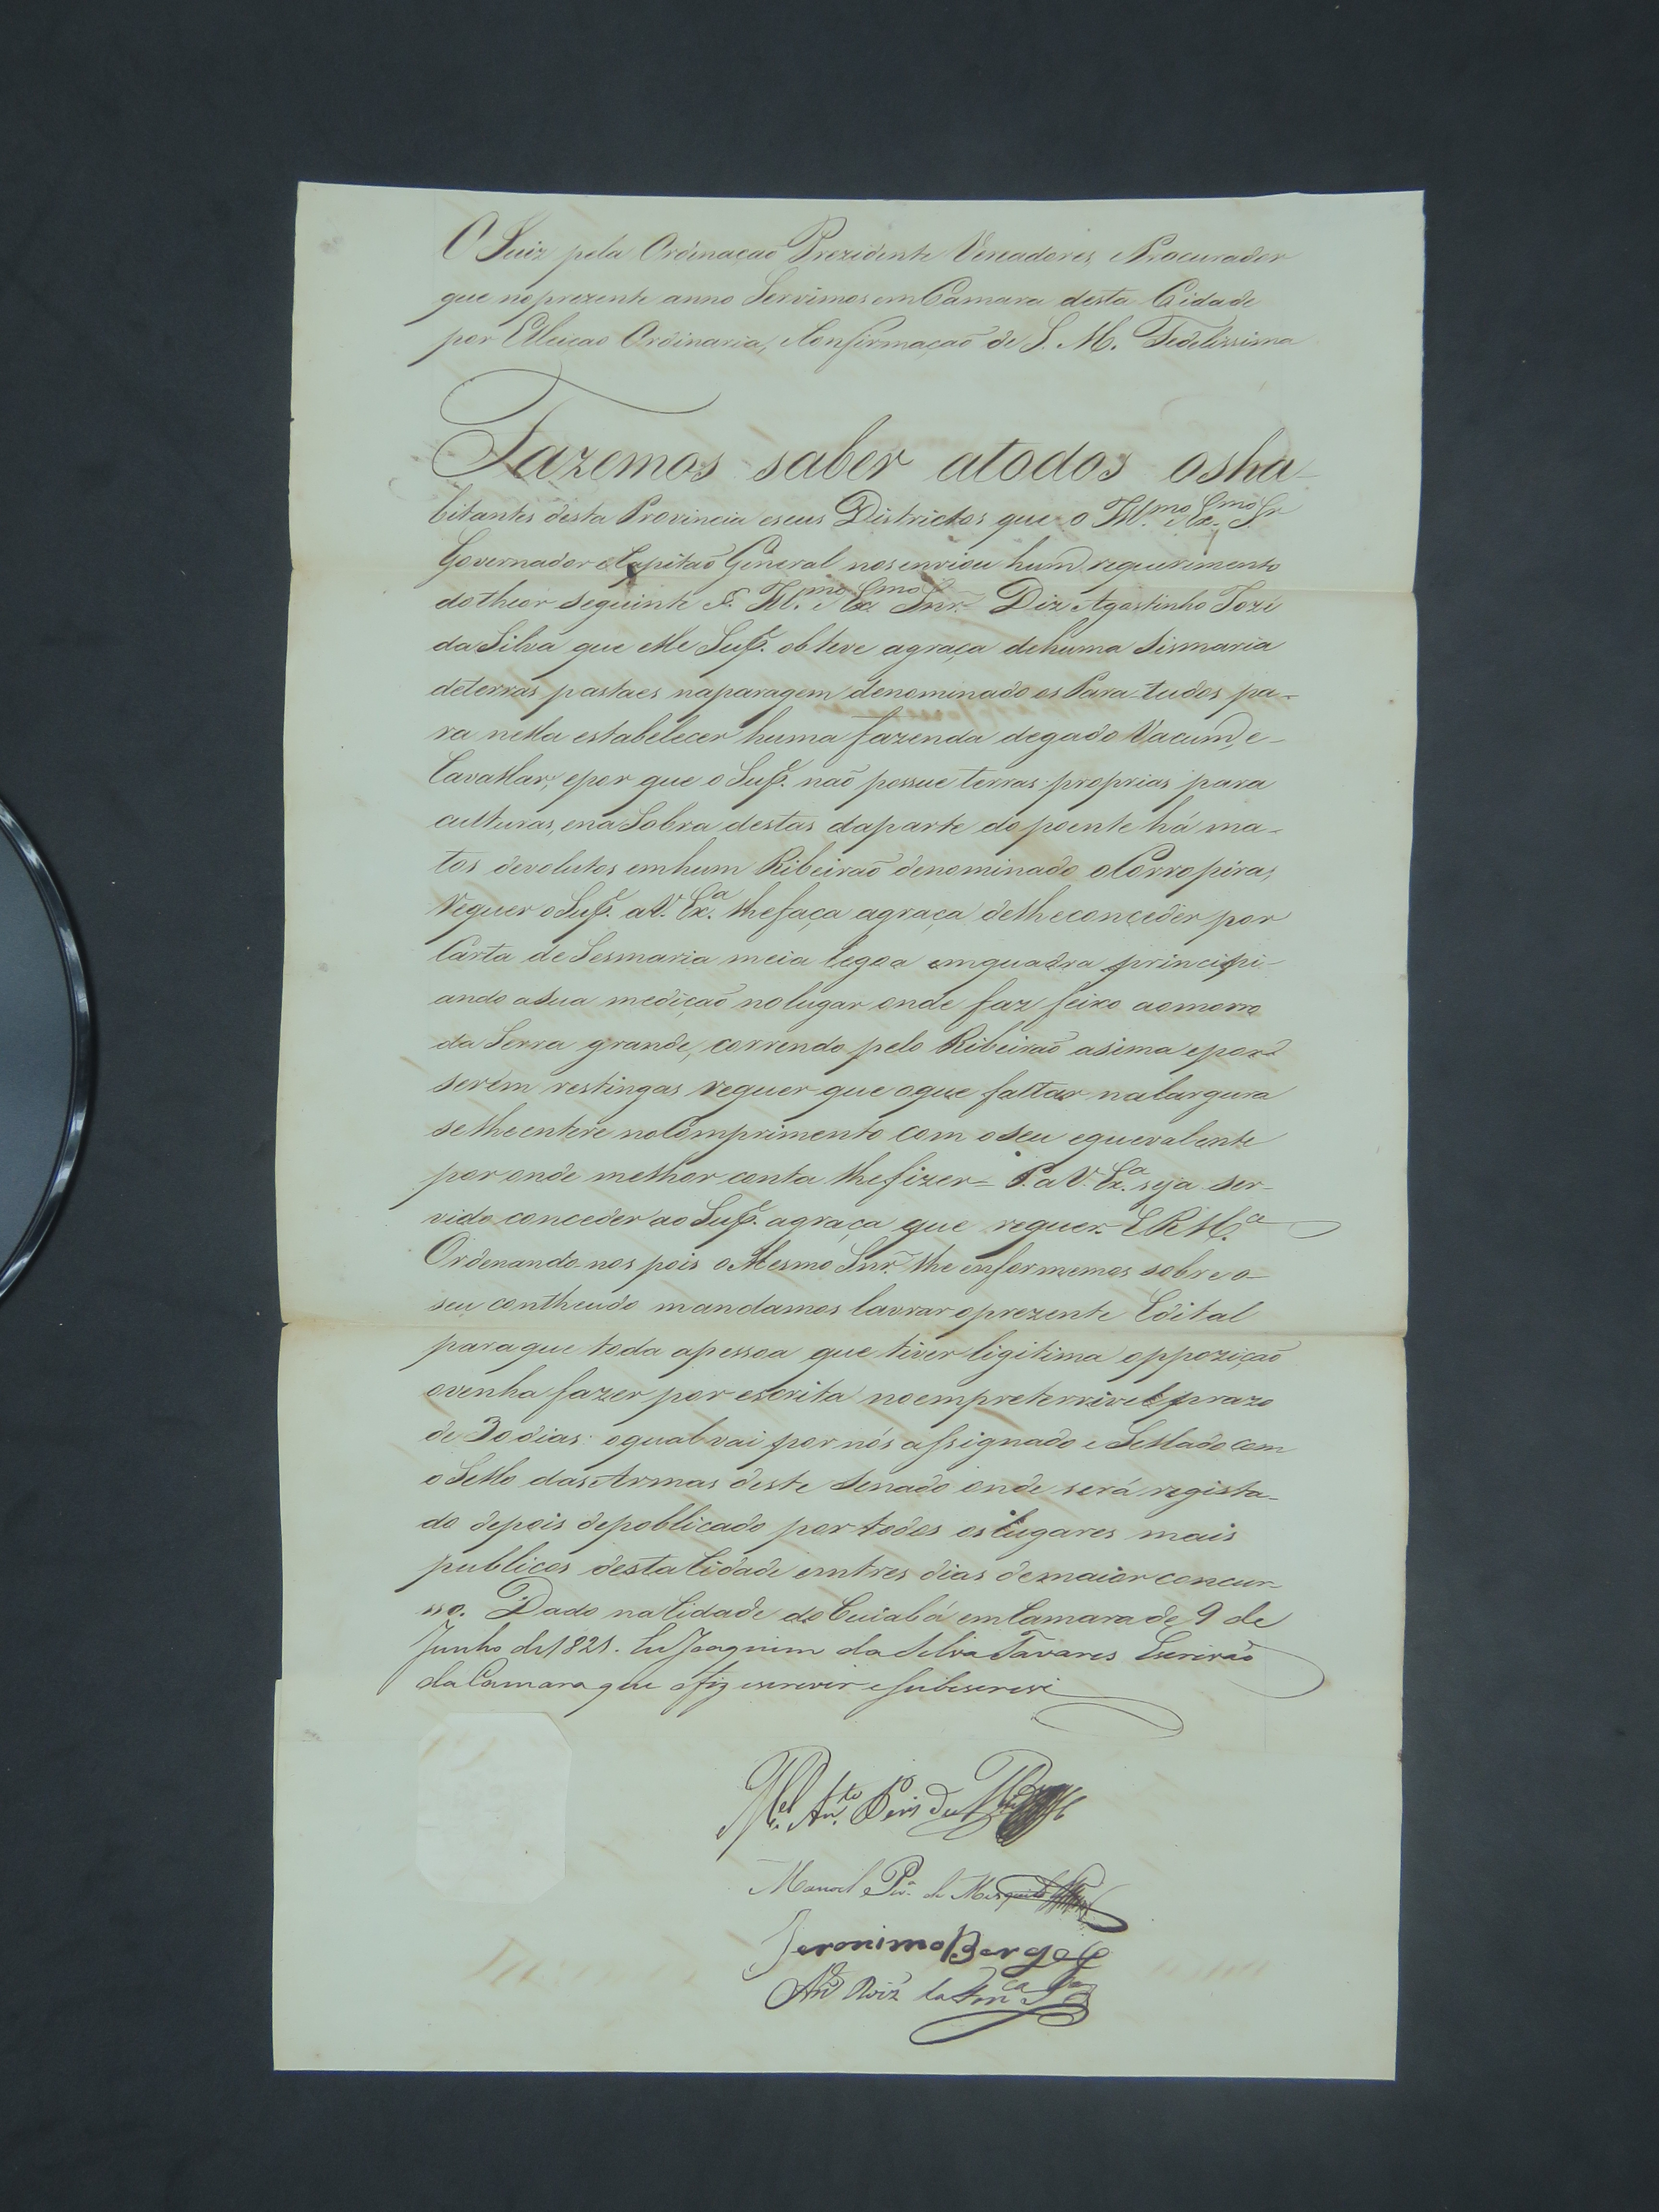 O Juiz pela Ordenaçaõ Prezidente Vereadores, e Procurador
que no prezente anno Servimos em Camara desta Cidade
por Elleicaõ Ordinaria, e Confirmaçaõ de S. M. Fedelissima
Fazemos saber atodos osha-
bitantes desta Provincia eseus Districtos que o Ill.mo e Ex.mo Sr.
Governador e Capitaõ General nos enviou hum requerimento
do theor seguinte Ill.mo e Ex.mo Snr. Diz Agostinho Jozé
da Silva que elle Sup.e obteve agraça dehuma Sismaria
deterras pastaes naparagem denominado os Para-tudos pa-
ra nella estabelecer huma fazenda degado Vacum, e-
Cavallar, epor que o Sup.e naõ possue terras proprias para
culturas, ena Sobra destas daparte do poente há ma-
tos devolutos emhum Ribeiraõ denominado o Corropira,
requer o Sup.e a V. Ex.a lhefaça agraça delheconceder por
Carta de Sesmaria meia legoa emquadra principi-
ando asua mediçaõ nolugar onde faz feixo aomorro
da Serra grande, correndo pelo Ribeiraõ asima epor
serem restingas requer que oque faltar nalargura
selheentere noComprimento com oseu equevalente
por onde melhor conta lhefizer= P. a V. Ex.a seja ser-
vido conceder ao Sup.e agraça que requer. E R M.ce
Ordenando nos pois o Mesmo Snr. lhe enformemos sobre o-
seu contheudo mandamos lavrar oprezente Edital
paraque toda apessoa que tiver ligitima oppoziçaõ
ovenha fazer por escrita noempreterrivel prazo
de 30 dias: oqual vai por nós assignado e Sellado com
o Sello das Armas deste Senado onde será regista-
do depois depoblicado por todos os lugares mais
publicos desta Cidade emtres dias demaior concur-
so. Dado na Cidade do Cuiabá em Camara de 9 de
Junho de 1821. Eu Joaquim da Silva Tavares Escrivaõ
da Camara que o fiz escrever e subscrevi
M.el An.to
Manoel Per.a de Mesquita
Jeronimo Borges